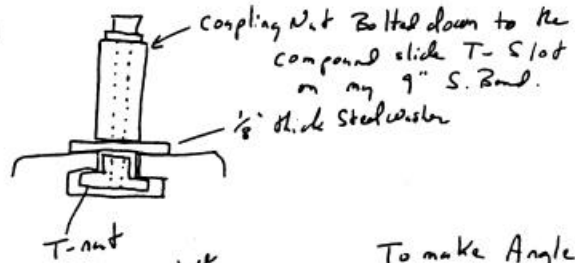 coupling Nut Bolted down to the
compound slide T-Slot
on my 9" S. Bend.
1/8" thick Steel washer
T-nut
To make Angle